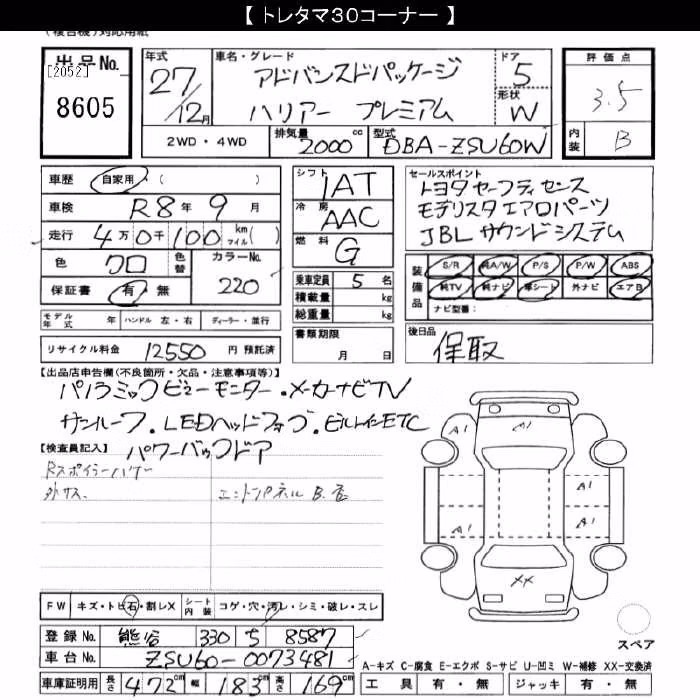 【 トレタマ30コーナー 】
(複合機)対応用紙
出品No.
[2052]
8605
年式 車名・グレード ドア 評価点
27/12月 アドバンスドパッケージ 5 3.5
ハリアー プレミアム 形状 W 内装 B
2WD・4WD 排気量 2000cc 型式 DBA-ZSU60W
車歴 自家用・( )
車検 R8年 9月
走行 4万0千100 km マイル( )
色 クロ 色替 カラーNo. 220
保証書 有・無
シフト 1AT
冷房 AAC
燃料 G
乗車定員 5名
積載量 kg
総重量 kg
書類期限 月 日
セールスポイント
トヨタセーフティセンス
モデリスタエアロパーツ
JBLサウンドシステム
装備品 S/R 純A/W P/S P/W ABS
純TV 純ナビ 革シート 外ナビ エアB
ナビ型番:
モデル年式 年 ハンドル 左・右 ディーラー・並行
リサイクル料金 12550 円 預託済
後日品 保取
【出品店申告欄(不良箇所・欠品・注意事項等)】
パノラミックビューモニター・メーカーナビTV
サンルーフ・LEDヘッドフォグ・ビルトインETC
パワーバックドア
【検査員記入】
Rスポイラーハゲー
外サス
エントパネル B.
A1 A1
A1 A1
A1 A1
XX
スペア
FW キズ・トビ石・割レX シート内装 コゲ・穴・汚レ・シミ・破レ・スレ
登録No. 熊谷 330 ち 8587
車台No. ZSU60-0073481
車庫証明用 長さ 472cm 幅 183cm 高さ 169cm
A-キズ C-腐食 E-エクボ S-サビ U-凹ミ W-補修 XX-交換済
工具 有・無 ジャッキ 有・無